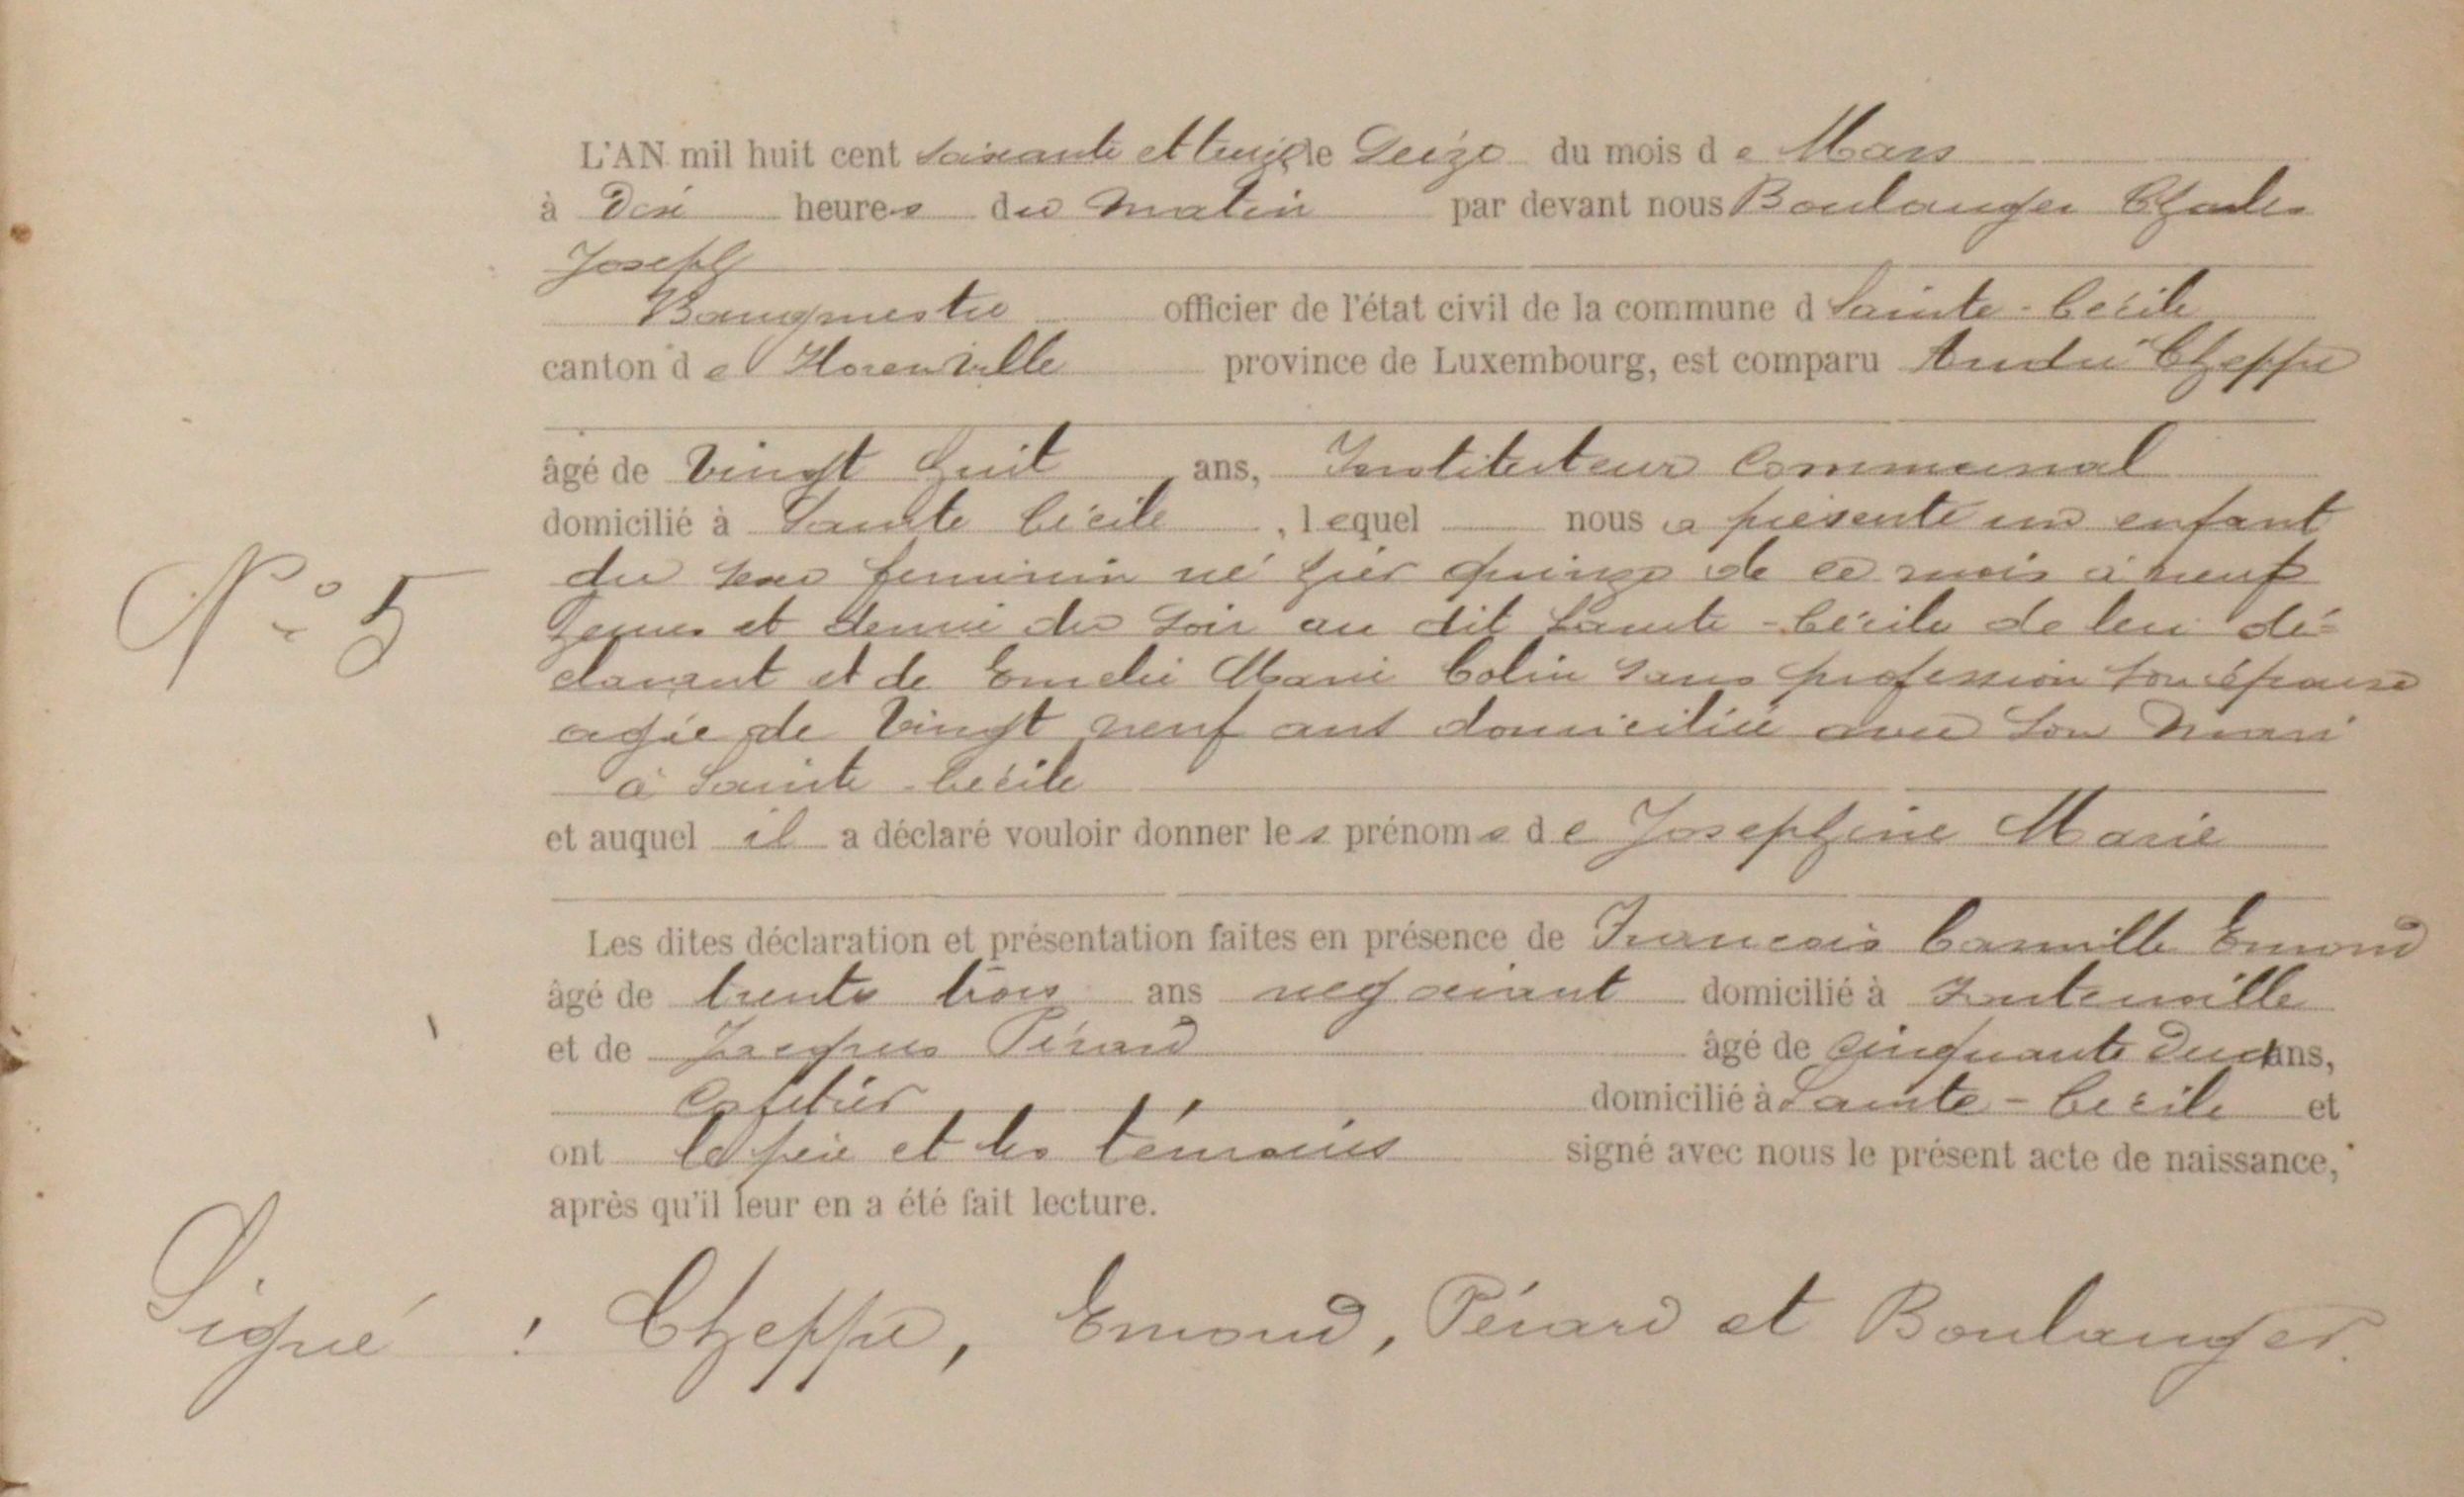 L'AN mil huit cent soixante et treize le Seize du mois de Mars
à Dix heures du Matin par devant nous Boulanger Charles
Joseph
Bourgmestre officier de l'état civil de la commune d Sainte-Cécile
canton de Florenville province de Luxembourg, est comparu André Cheppe
âgé de Vingt huit ans, Instituteur Communal
domicilié à Sainte Cécile, lequel nous a présenté un enfant
N° 5
du sexe feminin né hier quinze de ce mois à neuf
heures et demie du Soir au dit Sainte-Cécile de lui dé=
clarant et de Emelie Marie Colin sans profession son épouse
agée de Vingt neuf ans domiciliée avec Son Mari
à Sainte-Cécile
et auquel il a déclaré vouloir donner les prénoms de Josephine Marie
Les dites déclaration et présentation faites en présence de Francois Camille Emond
âgé de trente trois ans negociant domicilié à
et de Jacques Pérard âgé de Cinquante Deux ans,
Cafetier domicilié à Sainte-Cécile et
ont le père et les témoins signé avec nous le présent acte de naissance,
après qu'il leur en a été fait lecture.
Signé : Cheppe, Emond, Pérard et Boulanger.